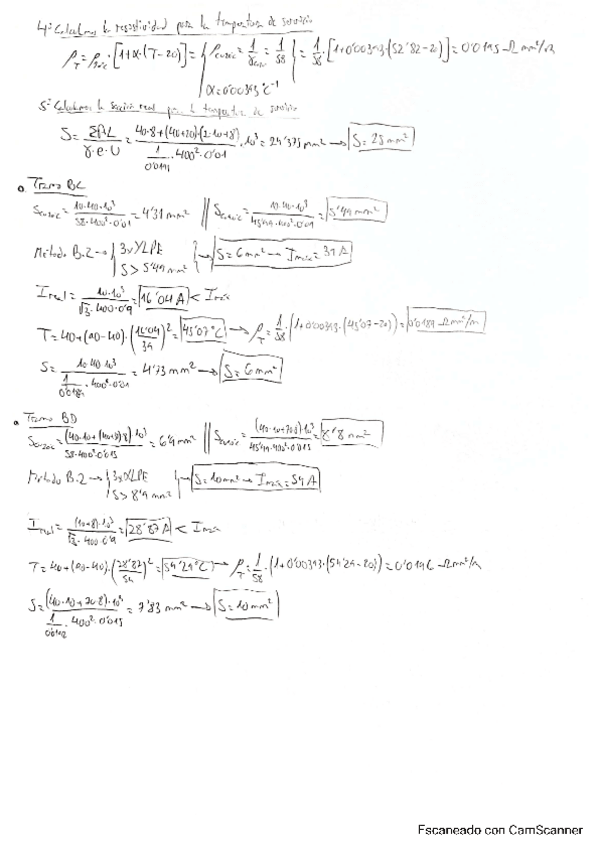 4º Calculamos la resistividad para la temperatura de servicio
ρ_T = ρ_20ºC · [1+α·(T-20)] = { ρ_20ºC = 1/γ_20ºC = 1/58 ; α=0'00393 ºC⁻¹ } = 1/58 · [1+0'00393·(52'82-20)] = 0'0195 Ω mm²/m
5º Calculamos la sección real para la temperatura de servicio
S = ΣP·L / γ·e·U = 40·8+(40+20)·(2·10+8) / (1/0'0195 · 400²·0'01) · 10³ = 24'375 mm² → S=25 mm²
Tramo BC
= 10·40·10³ / 58·400²·0'01 = 4'31 mm² || = 10·40·10³ / 45'49·400²·0'01 = 5'49 mm²
Método B2 → { 3xXLPE ; S > 5'49 mm² } → S=6mm² →
I real = 10·10³ / √3·400·0'9 = 16'04 A <
T = 40+(90-40)· = 45'07ºC → ρ_T = 1/58·(1+0'00393·(45'07-20)) = 0'0189 Ω mm²/m
S = 10·40·10³ / (1/0'0189 · 400²·0'01) = 4'73 mm² → S=6mm²
Tramo BD
10³ / 58·400²·0'015 = 6'9 mm² || 10³ / 45'49·400²·0'015 =
Método B2 → { 3xXLPE ; → S=10mm² → = 54 A
I real = (10+8)·10³ / √3·400·0'9 = 28'87 A <
T = 40+(90-40)·(28'87/54)² = 54'29ºC → ρ_T = 1/58·(1+0'00393·(54'29-20)) = 0'0196 Ω mm²/m
S = = 7'83 mm² → S=10mm²
Escaneado con CamScanner